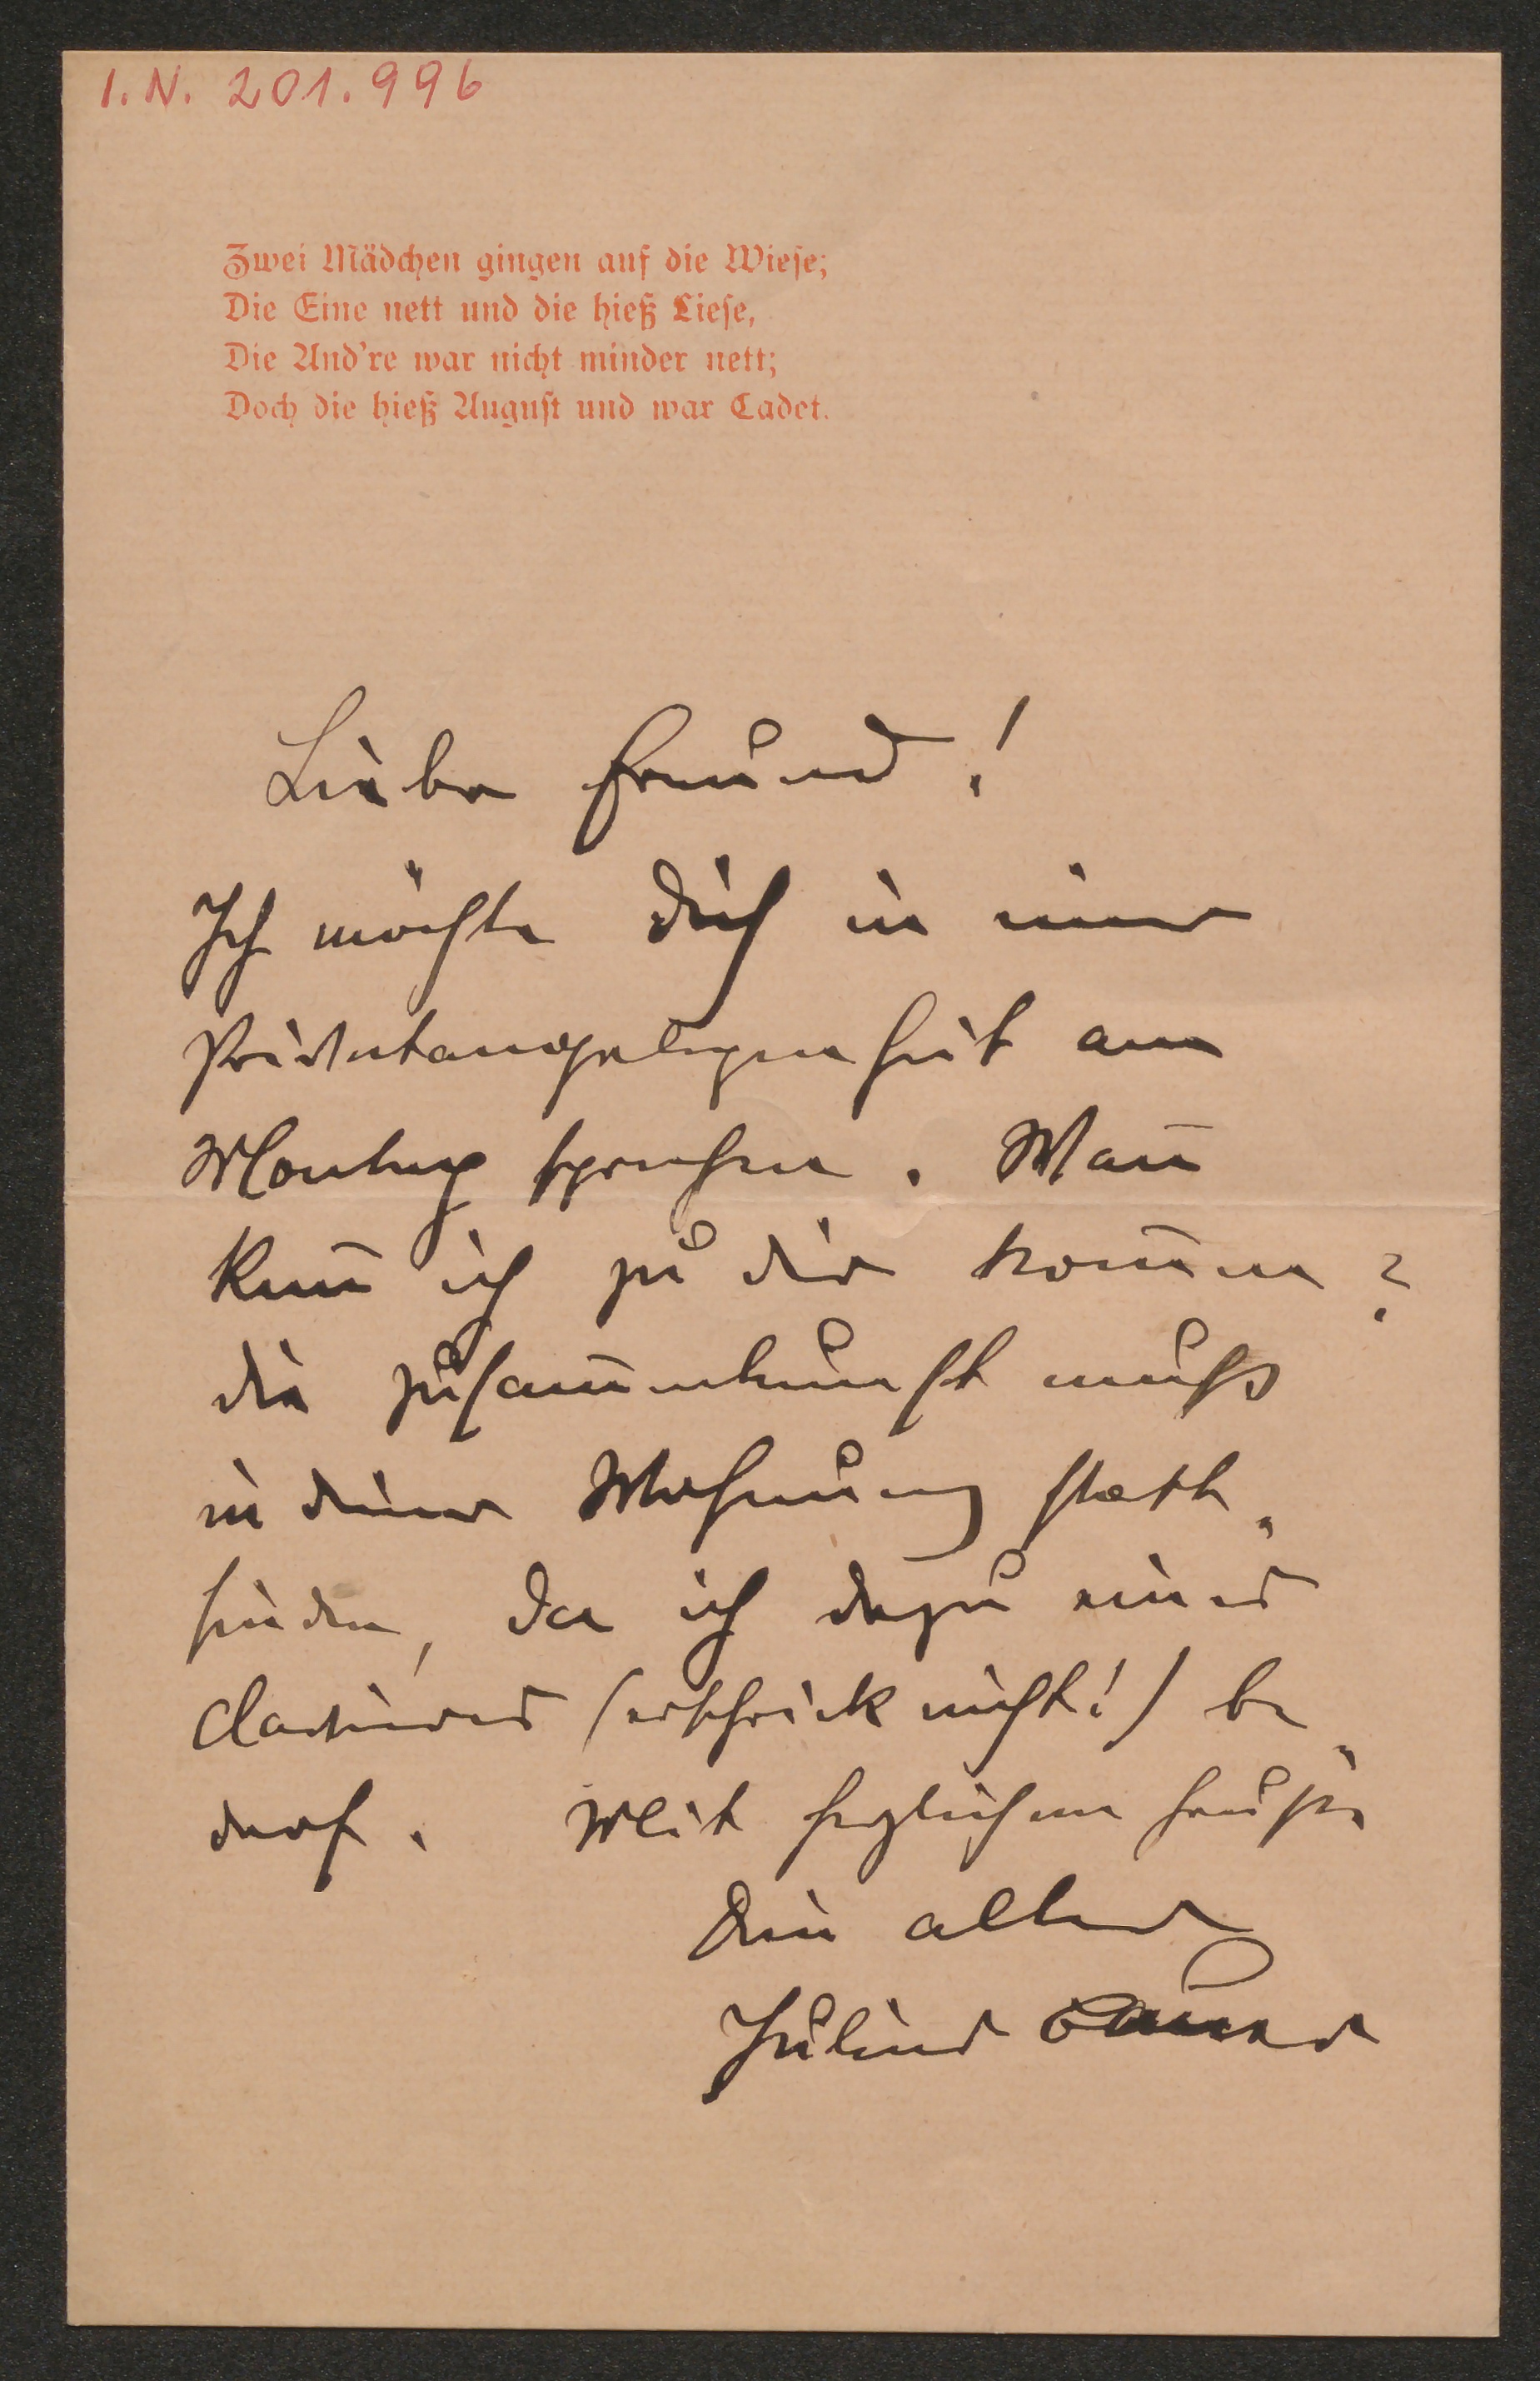 I.N. 201.996
Zwei Mädchen gingen auf die Wiese;
Die Eine nett und die hieß Liese,
Die And're war nicht minder nett;
Doch die hieß August und war Cadet.
Lieber Freund!
Ich möchte dich in einer
Privatangelegenheit am
Montag sprechen. Wan̄
kan̄ ich zu dir kom̄en?
die Zusam̄enkunft muß
in deiner Wohnung statt-
finden, da ich dazu eines
Claviers (erschrick nicht!) be-
darf. Mit herzlichem Gruße
Dein alter
Julius Bauer